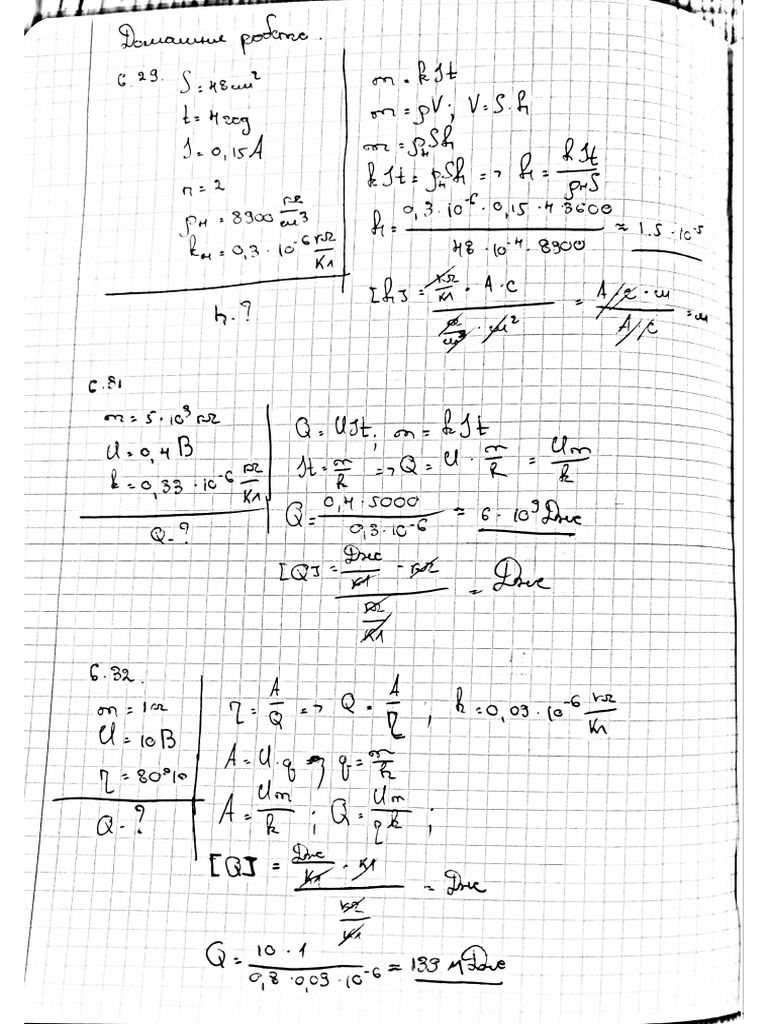 Домашня робота.
6.29.
S = 48 см²
t = 4 год
I = 0,15 А
n = 2
ρн = 8900 кг/см³
kн = 0,3 · 10⁻⁶ кг/Кл
h - ?
m = kIt
m = ρV; V = S·h
m = ρнSh
kIt = ρнSh => h = kIt/ρнS
h = 0,3 · 10⁻⁶ · 0,15 · 4 · 3600 / 48 · 10⁻⁴ · 8900 ≈ 1.5 · 10⁻⁵
[h] = кг/Кл · А · с / кг/м³ · м² = А/с · м / А/с = м
6.31
m = 5 · 10³ кг
U = 0,4 В
k = 0,33 · 10⁻⁶ кг/Кл
Q - ?
Q = UIt; m = kIt
It = m/k => Q = U · m/k = Um/k
Q = 0,4 · 5000 / 0,3 · 10⁻⁶ ≈ 6 · 10⁹ Дж
[Q] = Дж/Кл · кг / кг/Кл = Дж
6.32.
m = 1 кг
U = 10 В
η = 80%
Q - ?
η = A/Q => Q = A/η ; k = 0,09 · 10⁻⁶ кг/Кл
A = U · q => q = m/k
A = Um/k ; Q = Um/ηk ;
[Q] = Дж/Кл · кг / кг/Кл = Дж
Q = 10 · 1 / 0,8 · 0,09 · 10⁻⁶ ≈ 139 МДж